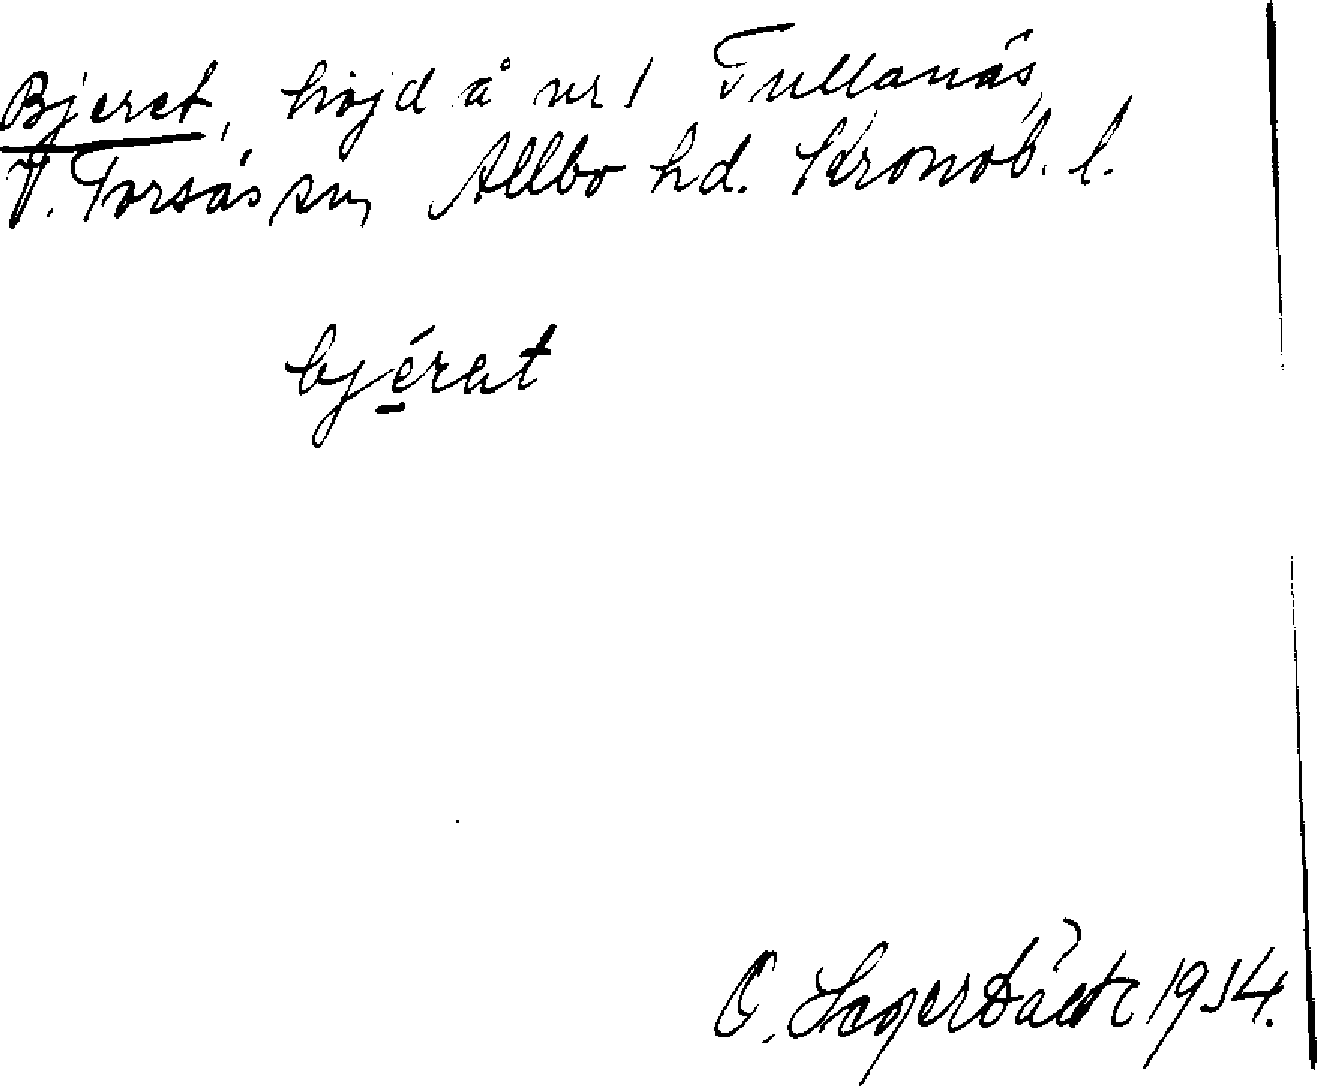 Bjeret, höjd å nr 1 Tullanäs,
V. Torsås sn, Allbo hd. Kronob. l.
bjérat
O. Lagerbäck 1934.